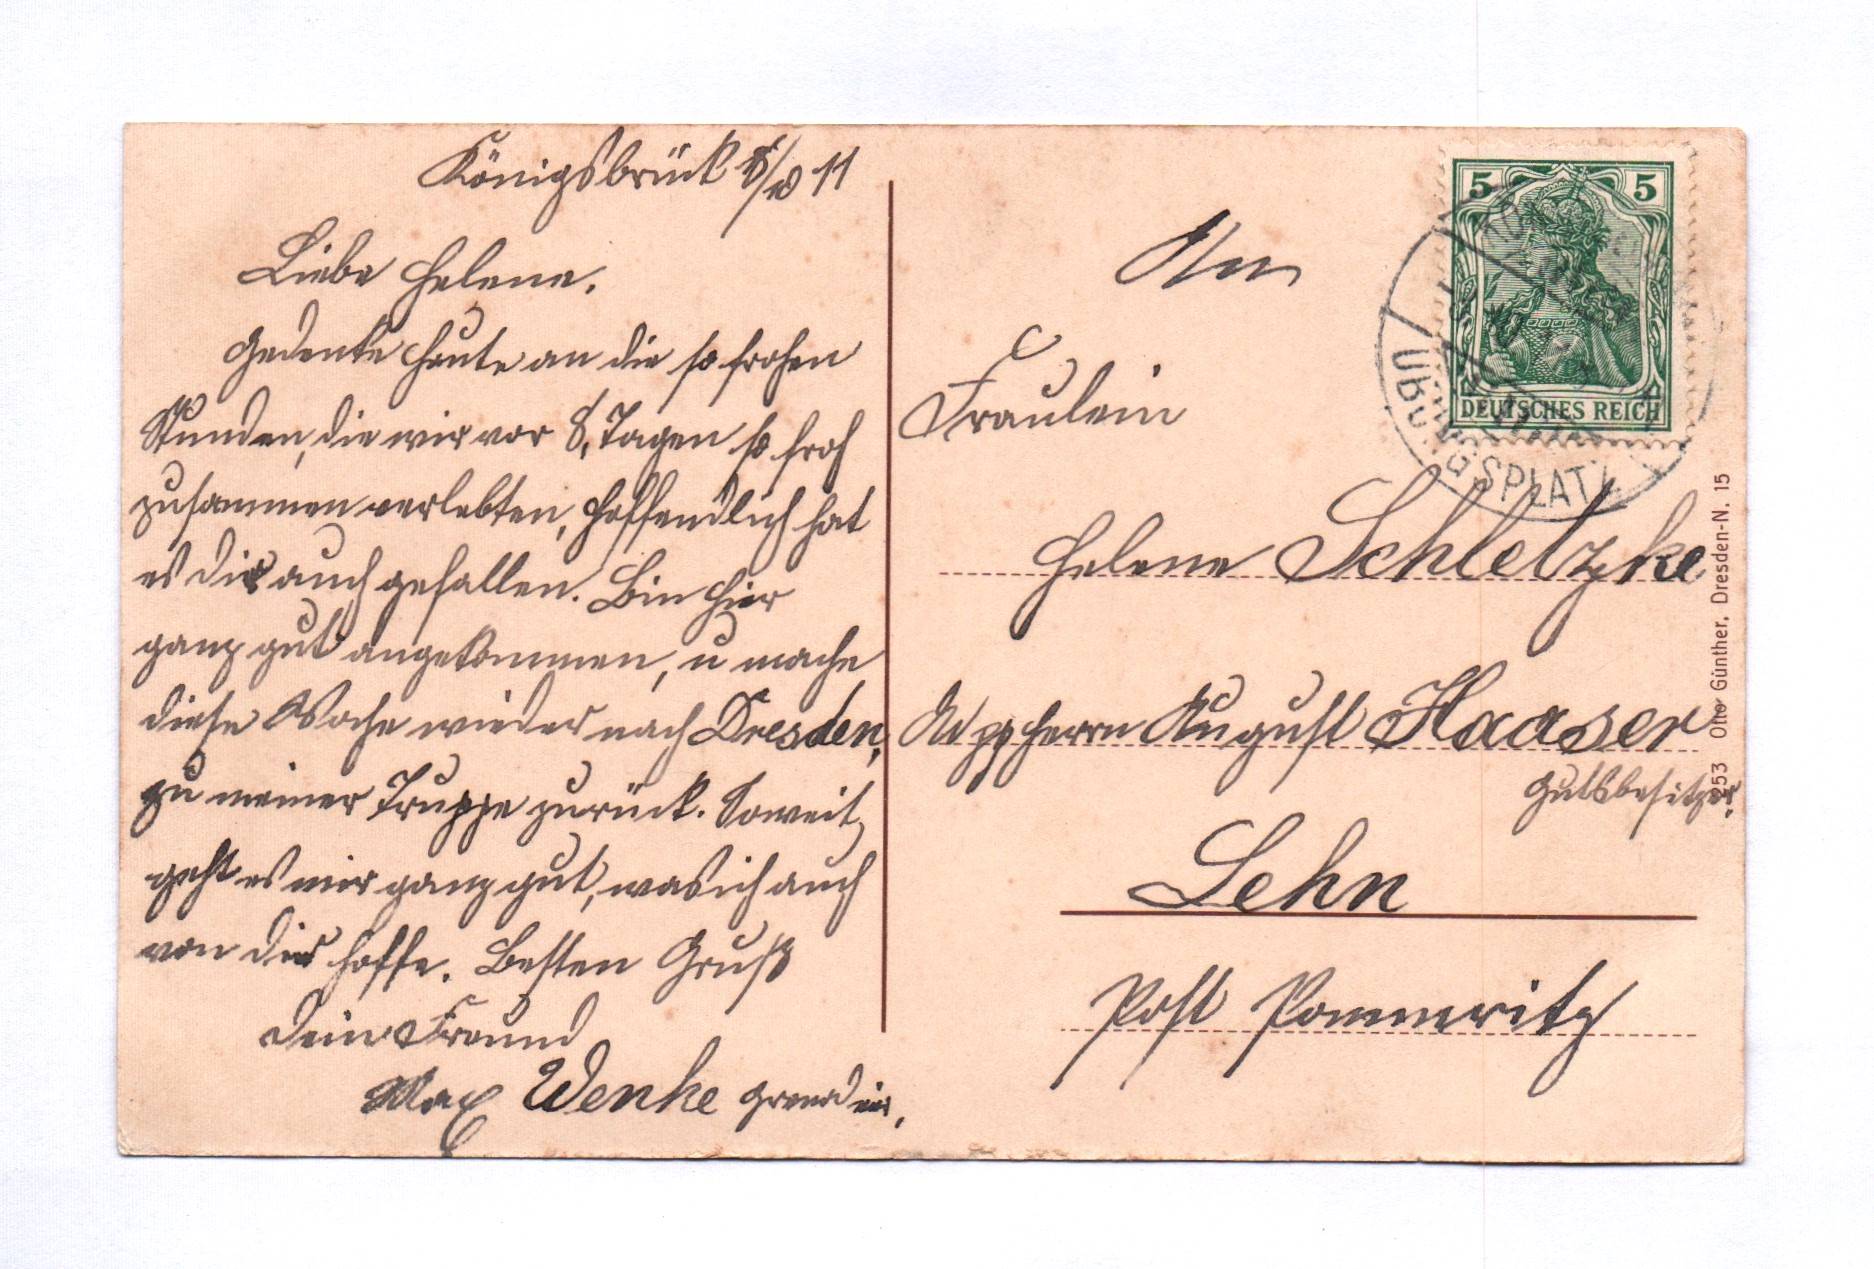 Königsbrück 8/10 11
Liebe Helene.
Gedenke heute an die so frohen
Stunden, die wir vor 8. Tagen so froh
zusammen verlebten, hoffendlich hat
es dir auch gefallen. Bin hier
ganz gut angekommen, u mache
diese Woche wieder nach Dresden,
zu meiner Truppe zurück. Soweit
geht es mir ganz gut, was ich auch
von dir hoffe. Besten Gruß
dein Freund
Max Wenke Grenadier,
An
Fräulein
Helene Schletzke
Herrn August Haaser
Gutsbesitzer
Lehn
Post Pommritz
5 5
DEUTSCHES REICH
ÜBUNGSPLATZ
253 Otto Günther, Dresden-N. 15